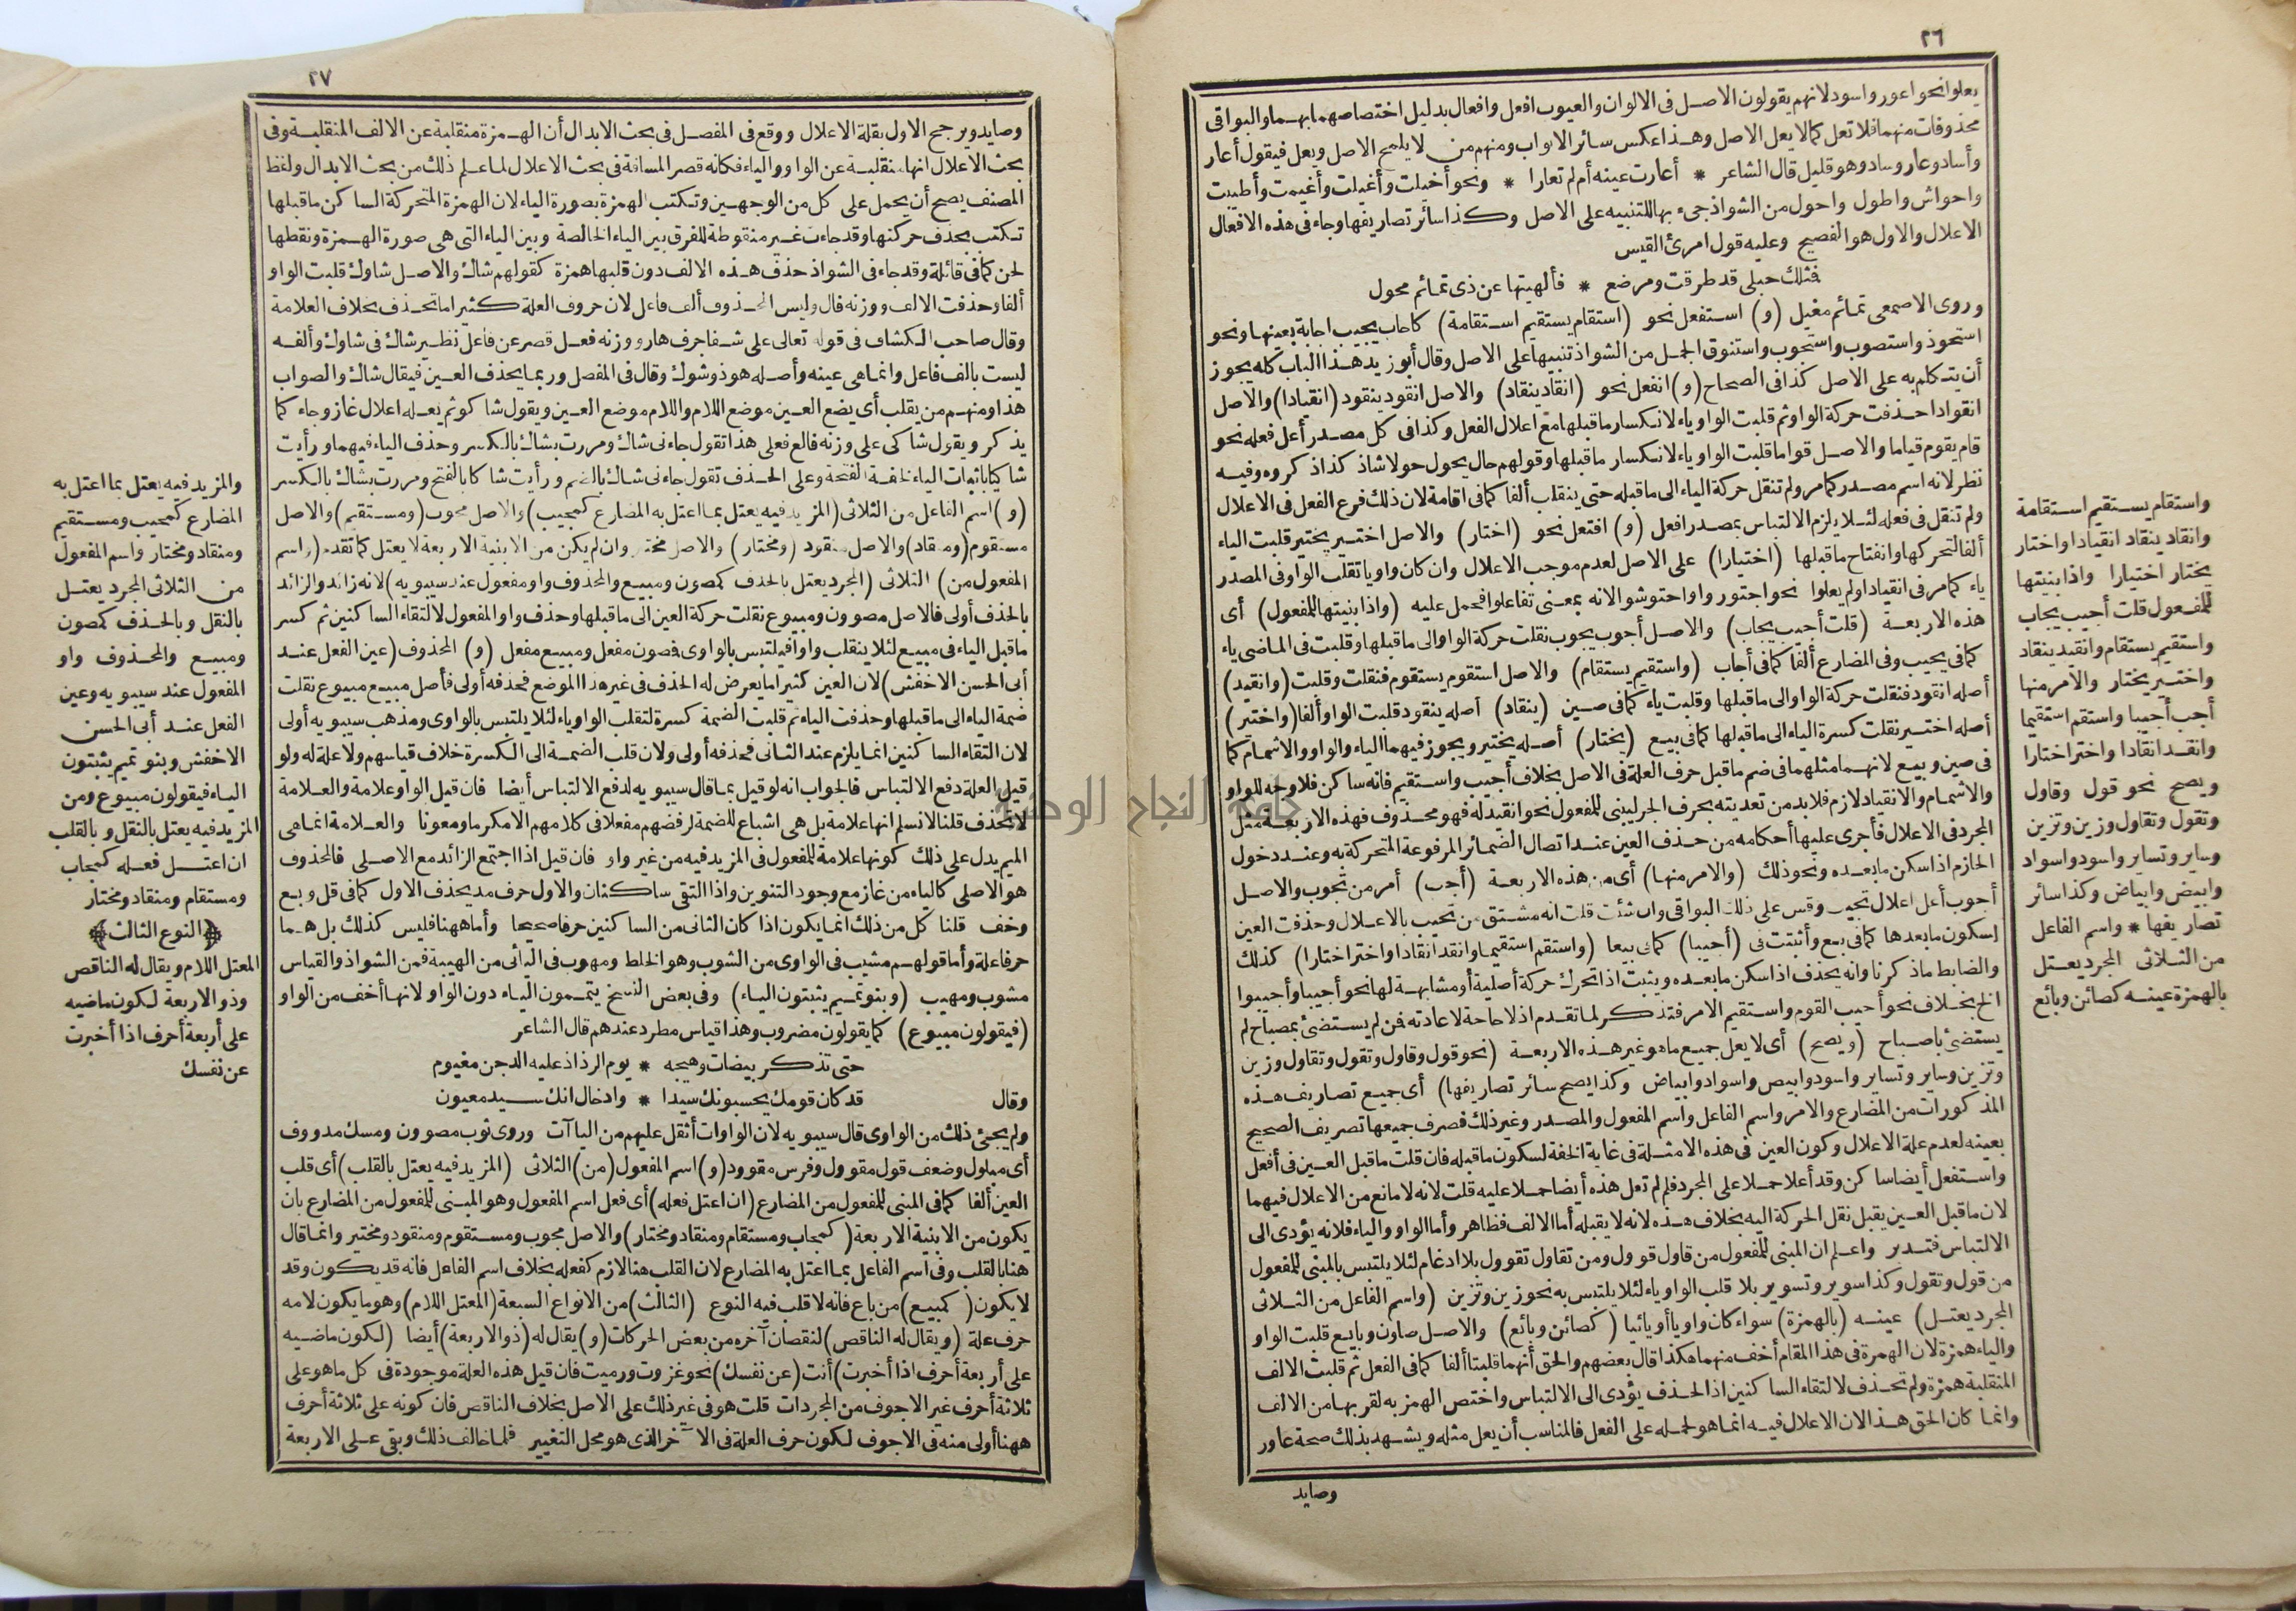 ٢٦
يعلوا نحو اعور واسود لانهم يقولون الاصل فى الالوان والعيوب افعل وافعال بدليل اختصاصهما بهما والبواقى
محذوفات منهما فلا تعل كما لا يعل الاصل وهذا عكس سائر الابواب ومنهم من لا يلمح الاصل ويعل فيقول أعار
وأساد وعار وساد وهو قليل قال الشاعر * أعارت عينه أم لم تعارا * ونحو أخيلت وأغيلت وأغيمت وأطيبت
واحواش واطول واحول من الشواذ جىء بها للتنبيه على الاصل وكذا سائر تصاريفها وجاء فى هذه الافعال
الاعلال والاول هو الفصيح وعليه قول امرئ القيس
فمثلك حبلى قد طرقت ومرضع * فألهيتها عن ذى تمائم محول
وروى الاصمعى تمائم مغيل (و) استفعل نحو (استقام يستقيم استقامة) كاجاب يجيب اجابة بعينها ونحو
استحوذ واستصوب واستجوب واستنوق الجمل من الشواذ تنبيها على الاصل وقال أبو زيد هذا الباب كله يجوز
أن يتكلم به على الاصل كذا فى الصحاح (و) انفعل نحو (انقاد ينقاد) والاصل انقود ينقود (انقيادا) والاصل
انقوادا حذفت حركة الواو ثم قلبت الواو ياء لانكسار ما قبلها مع اعلال الفعل وكذا فى كل مصدر أعل فعله نحو
قام يقوم قياما والاصل قواما قلبت الواو ياء لانكسار ما قبلها وقولهم حال يحول حولا شاذ كذا ذكروه وفيه
نظر لانه اسم مصدر كما مر ولم تنقل حركة الياء الى ما قبله حتى ينقلب ألفا كما فى اقامة لان ذلك فرع الفعل فى الاعلال
ولم تنقل فى فعله لئلا يلزم الالتباس بمصدر افعل (و) افتعل نحو (اختار) والاصل اختير يختير قلبت الياء
ألفا لتحركها وانفتاح ما قبلها (اختيارا) على الاصل لعدم موجب الاعلال وان كان واويا تقلب الواو فى المصدر
ياء كما مر فى انقيادا ولم يعلوا نحو اجتوروا واحتوشوا لانه بمعنى تفاعلوا فحمل عليه (واذا بنيتها للمفعول) أى
هذه الاربعة (قلت أجيب يجاب) والاصل أجوب يجوب نقلت حركة الواو الى ما قبلها وقلبت فى الماضى ياء
كما فى يجيب وفى المضارع ألفا كما فى أجاب (واستقيم يستقام) والاصل استقوم يستقوم فنقلت وقلبت (وانقيد)
أصله انقود فنقلت حركة الواو الى ما قبلها وقلبت ياء كما فى صين (ينقاد) أصله ينقود قلبت الواو ألفا (واختير)
أصله اختير نقلت كسرة الياء الى ما قبلها كما فى بيع (يختار) أصله يختير ويجوز فيهما الياء والواو والاشمام كما
فى صين وبيع لانهما مثلهما فى ضم ما قبل حرف العلة فى الاصل بخلاف أجيب واستقيم فانه ساكن فلا وجه للواو
والاشمام والانقياد لازم فلا بد من تعديته بحرف الجر ليبنى للمفعول نحو انقيد له فهو محذوف فهذه الاربعة مثل
المجرد فى الاعلال فأجرى عليها أحكامه من حذف العين عند اتصال الضمائر المرفوعة المتحركة به وعند دخول
الجازم اذا سكن ما بعده ونحو ذلك (والامر منها) أى من هذه الاربعة (أجب) أمر من تجوب والاصل
أجوب أعل اعلال تجيب وقس على ذلك البواقى وان شئت قلت انه مشتق من تجيب بالاعلال وحذفت العين
لسكون ما بعدها كما فى بع وأثبتت فى (أجيبا) كما فى بيعا (واستقم استقيما وانقد انقادا واختر اختارا) كذلك
والضابط ما ذكرنا وانه يحذف اذا سكن ما بعده ويثبت اذا تحرك حركة أصلية أو مشابهة لها نحو أجيبا وأجيبوا
الخ بخلاف نحو أجيب القوم واستقيم الامر فتذكر لما تقدم اذ لا حاجة لاعادته فمن لم يستضئ بمصباح لم
يستضئ باصباح (ويصح) أى لا يعل جميع ما هو غير هذه الاربعة (نحو قول وقاول وتقول وتقاول وزين
وتزين وساير وتساير واسود وابيض واسواد وابياض وكذا يصح سائر تصاريفها) أى جميع تصاريف هذه
المذكورات من المضارع والامر واسم الفاعل واسم المفعول والمصدر وغير ذلك فصرف جميعها تصريف الصحيح
بعينه لعدم علة الاعلال وكون العين فى هذه الامثلة فى غاية الخفة لسكون ما قبله فان قلت ما قبل العين فى أفعل
واستفعل أيضا ساكن وقد أعلا حملا على المجرد فلم لم تعل هذه أيضا حملا عليه قلت لانه لا مانع من الاعلال فيهما
لان ما قبل العين يقبل نقل الحركة اليه بخلاف هذه لانه لا يقبله أما الالف فظاهر وأما الواو والياء فلانه يؤدى الى
الالتباس فتدبر واعلم ان المبنى للمفعول من قاول قوول ومن تقاول تقوول بلا ادغام لئلا يلتبس بالمبنى للمفعول
من قول وتقول وكذا سوير وتسوير بلا قلب الواو ياء لئلا يلتبس به نحو زين وتزين (واسم الفاعل من الثلاثى
المجرد يعتل) عينه (بالهمزة) سواء كان واويا أو يائيا (كصائن وبائع) والاصل صاون وبايع قلبت الواو
والياء همزة لان الهمزة فى هذا المقام أخف منهما هكذا قال بعضهم والحق أنهما قلبتا ألفا كما فى الفعل ثم قلبت الالف
المنقلبة همزة ولم تحذف لالتقاء الساكنين اذ الحذف يؤدى الى الالتباس واختص الهمز به لقربها من الالف
وانما كان الحق هذا لان الاعلال فيه انما هو لحمله على الفعل فالمناسب أن يعل مثله ويشهد بذلك صحة عاور
وصايد
واستقام يستقيم استقامة
وانقاد ينقاد انقيادا واختار
يختار اختيارا واذا بنيتها
للمفعول قلت أجيب يجاب
واستقيم يستقام وانقيد ينقاد
واختير يختار والامر منها
أجب أجيبا واستقم استقيما
وانقد انقادا واختر اختارا
ويصح نحو قول وقاول
وتقول وتقاول وزين وتزين
وساير وتساير واسود واسواد
وابيض وابياض وكذا سائر
تصاريفها * واسم الفاعل
من الثلاثى المجرد يعتل
بالهمزة عينه كصائن وبائع
٢٧
وصايد ويرجح الاول بقلة الاعلال ووقع فى المفصل فى بحث الابدال أن الهمزة منقلبة عن الالف المنقلبة وفى
بحث الاعلال انها منقلبة عن الواو والياء فكانه قصر المسافة فى بحث الاعلال لما علم ذلك من بحث الابدال ولفظ
المصنف يصح أن يحمل على كل من الوجهين وتكتب الهمزة بصورة الياء لان الهمزة المتحركة الساكن ما قبلها
تكتب بحذف حركتها وقد جاءت غير منقوطة للفرق بين الياء الخالصة وبين الياء التى هى صورة الهمزة ونقطها
لحن كما فى قائلة وقد جاء فى الشواذ حذف هذه الالف دون قلبها همزة كقولهم شاك والاصل شاوك قلبت الواو
ألفا وحذفت الالف ووزنه فال وليس المحذوف ألف فاعل لان حروف العلة كثيرا ما تحذف بخلاف العلامة
وقال صاحب الكشاف فى قوله تعالى على شفا جرف هار ووزنه فعل قصر عن فاعل نظير شاك فى شاوك وألفه
ليست بالف فاعل وانما هى عينه وأصله هور وشوك وقال فى المفصل وربما يحذف العين فيقال شاك والصواب
هذا ومنهم من يقلب أى يضع العين موضع اللام واللام موضع العين ويقول شاكو ثم يعله اعلال غاز وجاء كما
يذكر ويقول شاكى على وزنه فالع فعلى هذا تقول جاءنى شاك ومررت بشاك بالكسر وحذف الياء فيهما ورأيت
شاكيا باثبات الياء لخفة الفتحة وعلى الحذف تقول جاءنى شاك بالضم ورأيت شاكا بالفتح ومررت بشاك بالكسر
(و) اسم الفاعل من الثلاثى (المزيد فيه يعتل بما اعتل به المضارع كمجيب) والاصل مجوب (ومستقيم) والاصل
مستقوم (ومنقاد) والاصل منقود (ومختار) والاصل مختير وان لم يكن من الابنية الاربعة لا يعتل كما تقدم (واسم
المفعول من) الثلاثى (المجرد يعتل بالحذف كمصون ومبيع والمحذوف واو مفعول عند سيبويه) لانه زائد والزائد
بالحذف أولى فالاصل مصوون ومبيوع نقلت حركة العين الى ما قبلها وحذف واو المفعول لالتقاء الساكنين ثم كسر
ما قبل الياء فى مبيع لئلا ينقلب واوا فيلتبس بالواوى فمصون مفعل ومبيع مفعل (و) المحذوف (عين الفعل عند
أبى الحسن الاخفش) لان العين كثيرا ما يعرض له الحذف فى غير هذا الموضع فحذفه أولى فأصل مبيع مبيوع نقلت
ضمة الياء الى ما قبلها وحذفت الياء ثم قلبت الضمة كسرة لتقلب الواو ياء لئلا يلتبس بالواوى ومذهب سيبويه أولى
لان التقاء الساكنين انما يلزم عند الثانى فحذفه أولى ولان قلب الضمة الى الكسرة خلاف قياسهم ولا علة له ولو
قيل العلة دفع الالتباس فالجواب انه لو قيل بما قال سيبويه لدفع الالتباس أيضا فان قيل الواو علامة والعلامة
لا تحذف قلنا لا نسلم انها علامة بل هى اشباع للضمة لرفضهم مفعلا فى كلامهم الا مكرما ومعونا والعلامة انما هى
الميم يدل على ذلك كونها علامة للمفعول فى المزيد فيه من غير واو فان قيل اذا اجتمع الزائد مع الاصلى فالمحذوف
هو الاصلى كالياء من غاز مع وجود التنوين واذا التقى ساكنان والاول حرف مد يحذف الاول كما فى قل وبع
وخف قلنا كل من ذلك انما يكون اذا كان الثانى من الساكنين حرفا صحيحا وأما ههنا فليس كذلك بل هما
حرفا علة وأما قولهم مشيب فى الواوى من الشوب وهو الخلط ومهوب فى اليائى من الهيبة فمن الشواذ والقياس
مشوب ومهيب (وبنو تميم يثبتون الياء) وفى بعض النسخ يتممون الياء دون الواو لانها أخف من الواو
(فيقولون مبيوع) كما يقولون مضروب وهذا قياس مطرد عندهم قال الشاعر
حتى تذكر بيضات وهيجه * يوم الرذاذ عليه الدجن مغيوم
وقال قد كان قومك يحسبونك سيدا * واخال انك سيد معيون
ولم يجئ ذلك من الواوى قال سيبويه لان الواوات أثقل عليهم من الياآت وروى ثوب مصوون ومسك مدووف
أى مبلول وضعف قول مقوول وفرس مقوود (و) اسم المفعول (من) الثلاثى (المزيد فيه يعتل بالقلب) أى قلب
العين ألفا كما فى المبنى للمفعول من المضارع (ان اعتل فعله) أى فعل اسم المفعول وهو المبنى للمفعول من المضارع بان
يكون من الابنية الاربعة (كمجاب ومستقام ومنقاد ومختار) والاصل مجوب ومستقوم ومنقود ومختير وانما قال
هنا بالقلب وفى اسم الفاعل بما اعتل به المضارع لان القلب هنا لازم كفعله بخلاف اسم الفاعل فانه قد يكون وقد
لا يكون (كمبيع) من باع فانه لا قلب فيه النوع (الثالث) من الانواع السبعة (المعتل اللام) وهو ما يكون لامه
حرف علة (ويقال له الناقص) لنقصان آخره من بعض الحركات (و) يقال له (ذو الاربعة) أيضا (لكون ماضيه
على أربعة أحرف اذا أخبرت) أنت (عن نفسك) نحو غزوت ورميت فان قيل هذه العلة موجودة فى كل ما هو على
ثلاثة أحرف غير الاجوف من المجردات قلت هو فى غير ذلك على الاصل بخلاف الناقص فان كونه على ثلاثة أحرف
ههنا أولى منه فى الاجوف لكون حرف العلة فى الآخر الذى هو محل التغيير فلما خالف ذلك وبقى على الاربعة
والمزيد فيه يعتل بما اعتل به
المضارع كمجيب ومستقيم
ومنقاد ومختار واسم المفعول
من الثلاثى المجرد يعتل
بالنقل وبالحذف كمصون
ومبيع والمحذوف واو
المفعول عند سيبويه وعين
الفعل عند أبى الحسن
الاخفش وبنو تميم يثبتون
الياء فيقولون مبيوع ومن
المزيد فيه يعتل بالنقل وبالقلب
ان اعتل فعله كمجاب
ومستقام ومنقاد ومختار
﴿النوع الثالث﴾
المعتل اللام ويقال له الناقص
وذو الاربعة لكون ماضيه
على أربعة أحرف اذا أخبرت
عن نفسك